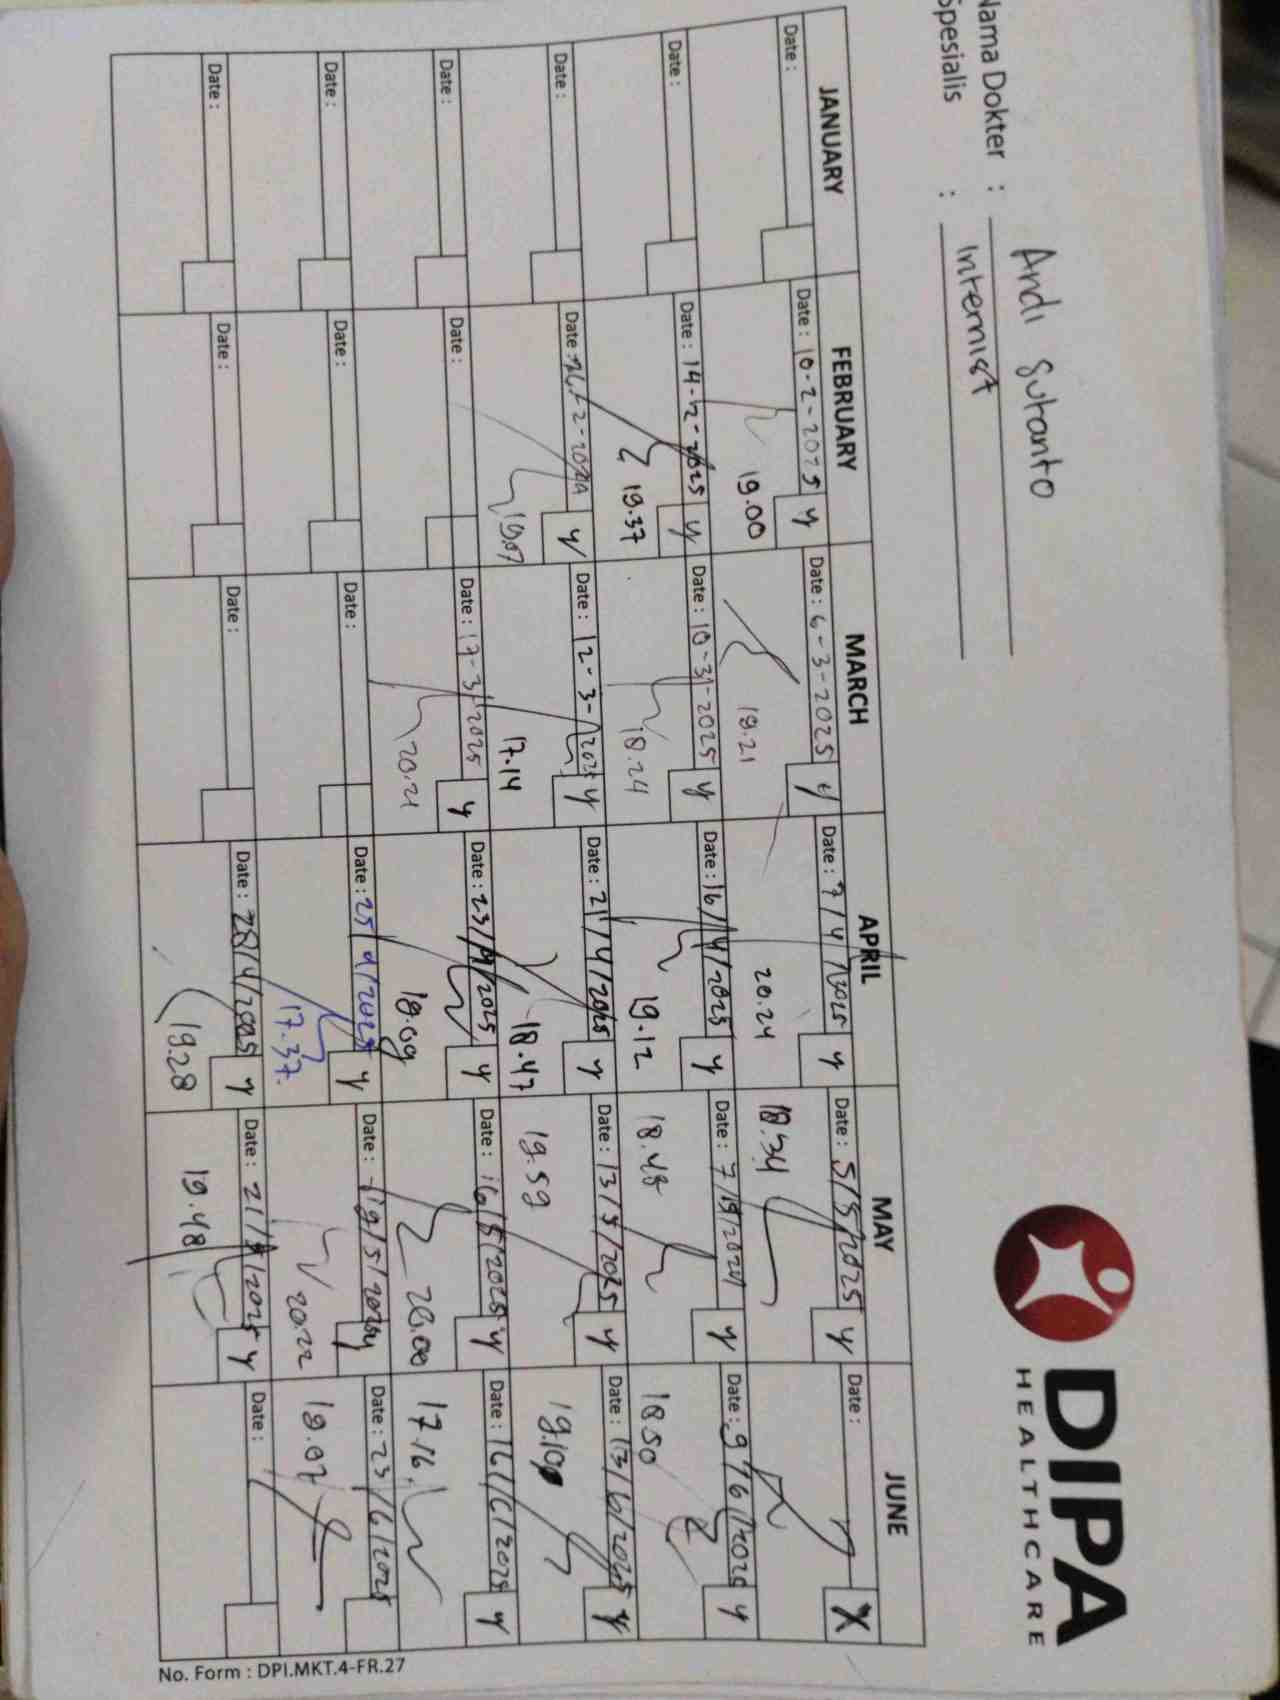 DIPA
HEALTHCARE
Nama Dokter : Andi Sutanto
Spesialis : Internist
JANUARY
FEBRUARY
MARCH
APRIL
MAY
JUNE
Date :
Date : 10-2-2025 y
Date : 6-3-2025 y
Date : 7/4/2025 y
Date : 5/5/2025 y
Date : X
19.00
19.21
20.24
18.34
Date :
Date : 14-2-2025 y
Date : 10-3-2025 y
Date : 16/4/2025 y
Date : 7/5/2025 y
Date : 9/6/2025 y
19.37
18.24
19.12
18.48
18.50
Date :
Date : 26-2-2025 y
Date : 12-3-2025 y
Date : 21/4/2025 y
Date : 13/5/2025 y
Date : 13/6/2025 y
19.07
17.14
18.47
19.59
19.10
Date :
Date :
Date : 17-3-2025 y
Date : 23/4/2025 y
Date : 16/5/2025 y
Date : 16/6/2025 y
20.21
18.09
20.00
17.16
Date :
Date :
Date :
Date : 25/4/2025 y
Date : 19/5/2025 y
Date : 23/6/2025
17.37
20.22
19.07
Date :
Date :
Date :
Date : 28/4/2025 y
Date : 21/5/2025 y
Date :
19.28
19.48
No. Form : DPI.MKT.4-FR.27